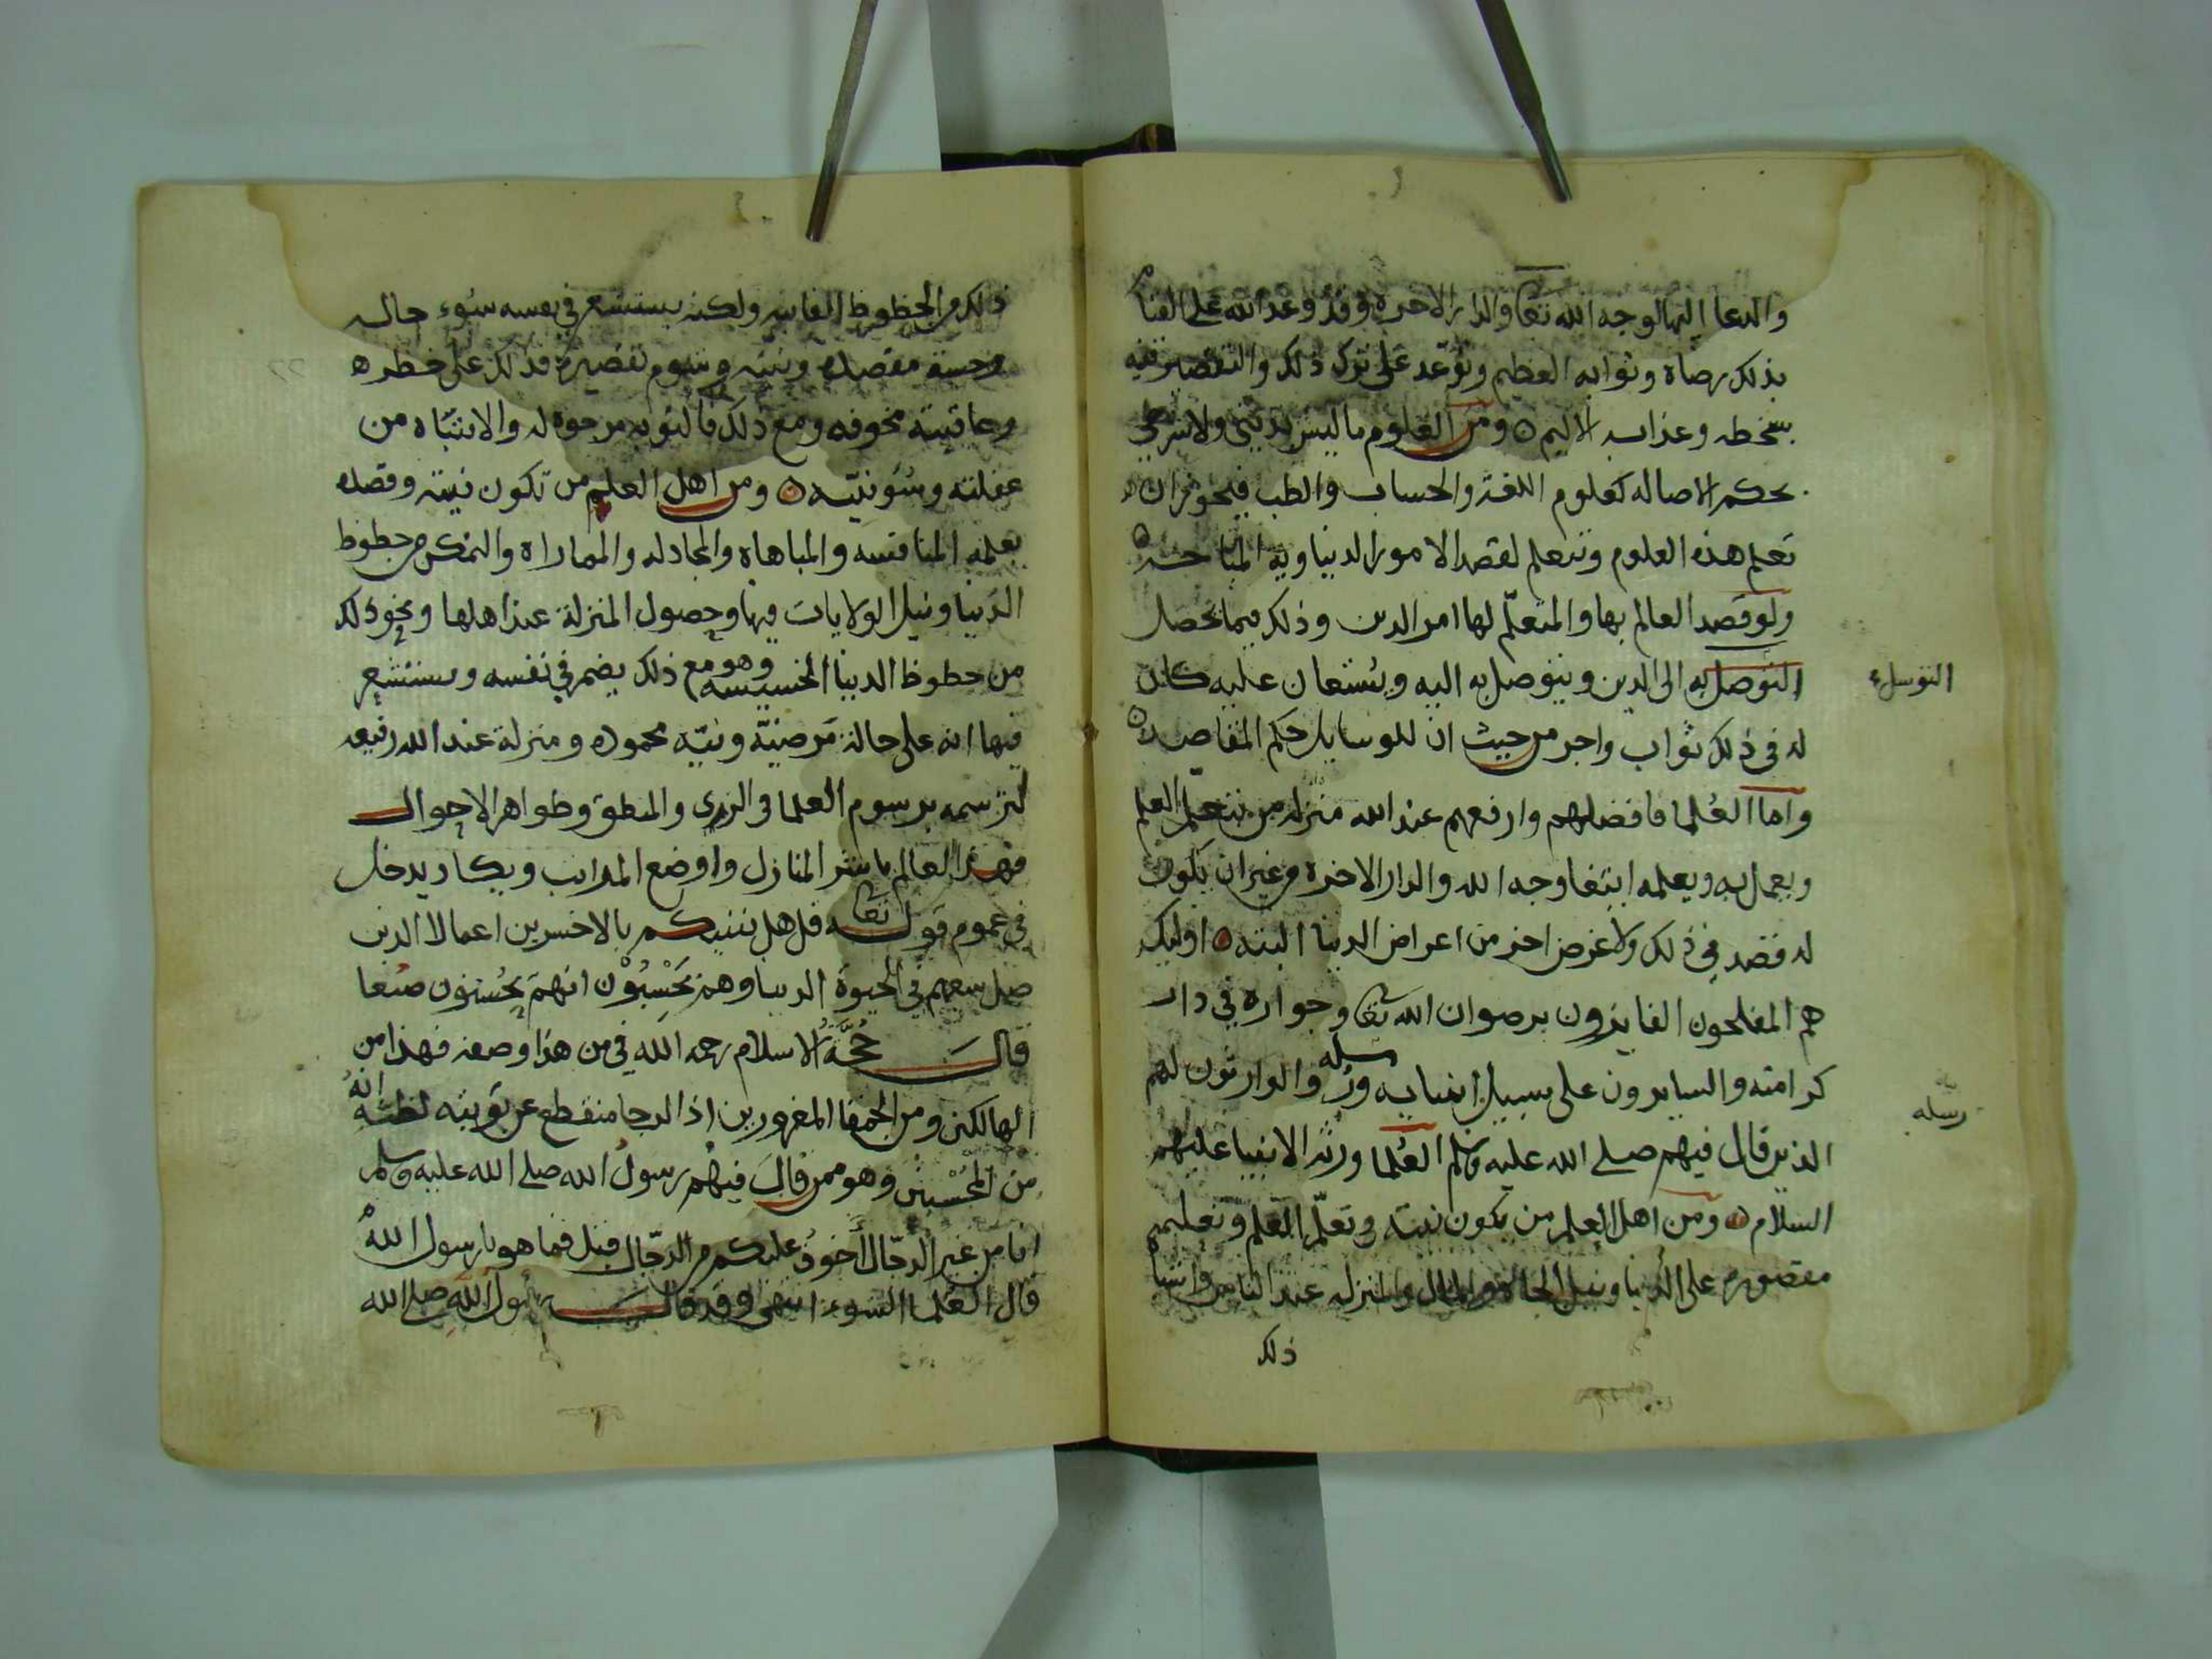 والدعا اليها لوجه الله تعا والدار الاخرة وقد وعد الله على القيام
بذلك رضاه وثوابه العظيم وتوعد على ترك ذلك والتقصير فيه
سخطه وعذابه الاليم ومن العلوم ما ليس بديني ولا شرعي
بحكم الاصاله كعلوم اللغة والحساب والطب فيجوز ان
تعلم هذه العلوم وتتعلم لقصد الامور الدنياويه المباحه
ولو قصد العالم بها والمتعلّم لها امر الدين وذلك فيما يحصل
التوصل به الى الدين ويتوصل به اليه ويستعان عليه كان
التوسل
له في ذلك ثواب واجر من حيث ان للوسايل حكم المقاصد
واما العُلما فافضلهم وارفعهم عند الله منزله من يتعلم العلم
ويعمل به ويعلمه ابتغا وجه الله والدار الاخرة من غير ان يكون
له قصد في ذلك ولا غرض اخر من اعراض الدنيا البته اوليك
هم المفلحون الفايزون برضوان الله تعا وجواره في دار
كرامته والسايرون على سبيل انبيايه ورسله والوارثون لهم
رسله
الذين قال فيهم صلى الله عليه وسلم العُلما ورثه الانبيا عليهم
السلام ومن اهل العلم من يكون نيته في تعلّم العلم وتعليمه
مقصوره على الدنيا ونيل الجاه والمال والمنزله عند الناس واشباه
ذلك
ذلك من الحظوظ الفانيه ولكنه يستشعر في نفسه سُوء حاله
وخسة مقصده ونيته وشوم تقصيره فذلك على خطر
وعاقبته مخوفه ومع ذلك فالتوبه مرجوه له والانتباه من
غفلته وسُوء نيّته ومن اهل العلم من تكون نيته وقصده
بعلمه المنافسه والمباهاه والمجادله والمماراة والتمكن من حظوظ
الدنيا ونيل الولايات فيها وحصول المنزلة عند اهلها ونحو ذلك
من حظوظ الدنيا الخسيسه وهو مع ذلك يضمر في نفسه ويستشعر
فيها انه على حالة مَرضيّة ونيّه محموده ومنزلة عند الله رفيعه
لترسمه برسوم العلما في الزي والمنطق وظواهر الاحوال
فهذا العالم باشر المنازل واوضع المراتب ويكاد يدخل
في عموم قوله تعا قل هل ننبيكم بالاخسرين اعمالا الذين
ضل سعيهم في الحيوة الدنيا وهم يَحْسِبُوْن انهم يُحْسِنون صنعا
قال حُجَّةُ الاسلام رحمه الله في من هذا وصفه فهذا من
الهالكين ومن الحمقا المغرورين اذ الرجا منقطع عن توبته لظنه انهُ
من المُحْسنين وهو ممن قال فيهم رسول الله صلى الله عليه وسلم
انا من غير الدجّال أخوفُ عليكم من الدجّال فقيل فما هو يارسول الله
قال العُلما السوء انتهى وقد قال رسُول الله صلى الله